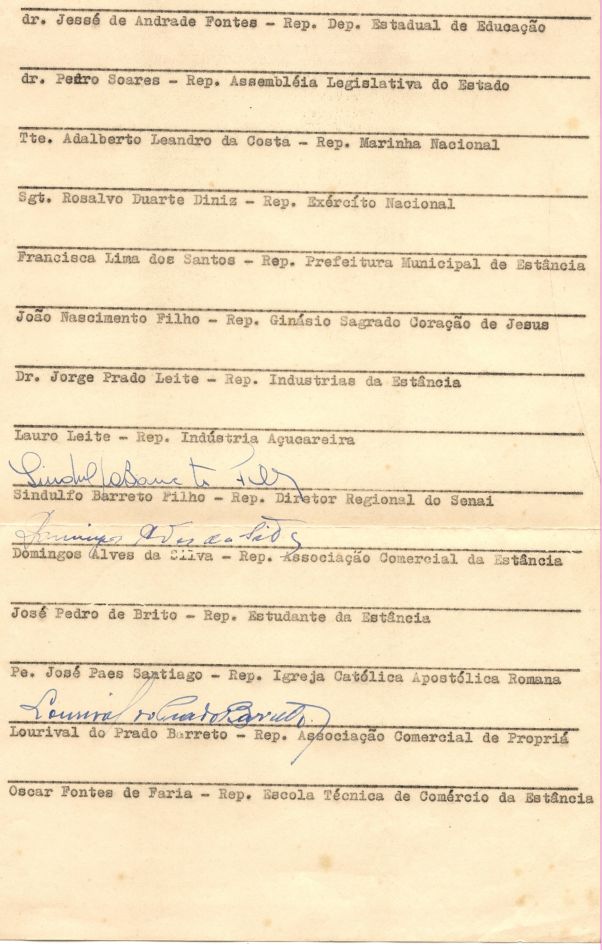 dr. Jessé de Andrade Fontes - Rep. Dep. Estadual de Educação
dr. Pedro Soares - Rep. Assembléia Legislativa do Estado
Tte. Adalberto Leandro da Costa - Rep. Marinha Nacional
Sgt. Rosalvo Duarte Diniz - Rep. Exército Nacional
Francisca Lima dos Santos - Rep. Prefeitura Municipal de Estância
João Nascimento Filho - Rep. Ginásio Sagrado Coração de Jesus
Dr. Jorge Prado Leite - Rep. Industrias da Estância
Lauro Leite - Rep. Indústria Açucareira
Sindulfo Barreto Filho
Sindulfo Barreto Filho - Rep. Diretor Regional do Senai
Domingos Alves da Silva
Domingos Alves da Silva - Rep. Associação Comercial da Estância
José Pedro de Brito - Rep. Estudante da Estância
Pe. José Paes Santiago - Rep. Igreja Católica Apostólica Romana
Lourival do Prado Barreto
Lourival do Prado Barreto - Rep. Associação Comercial de Propriá
Oscar Fontes de Faria - Rep. Escola Técnica de Comércio da Estância